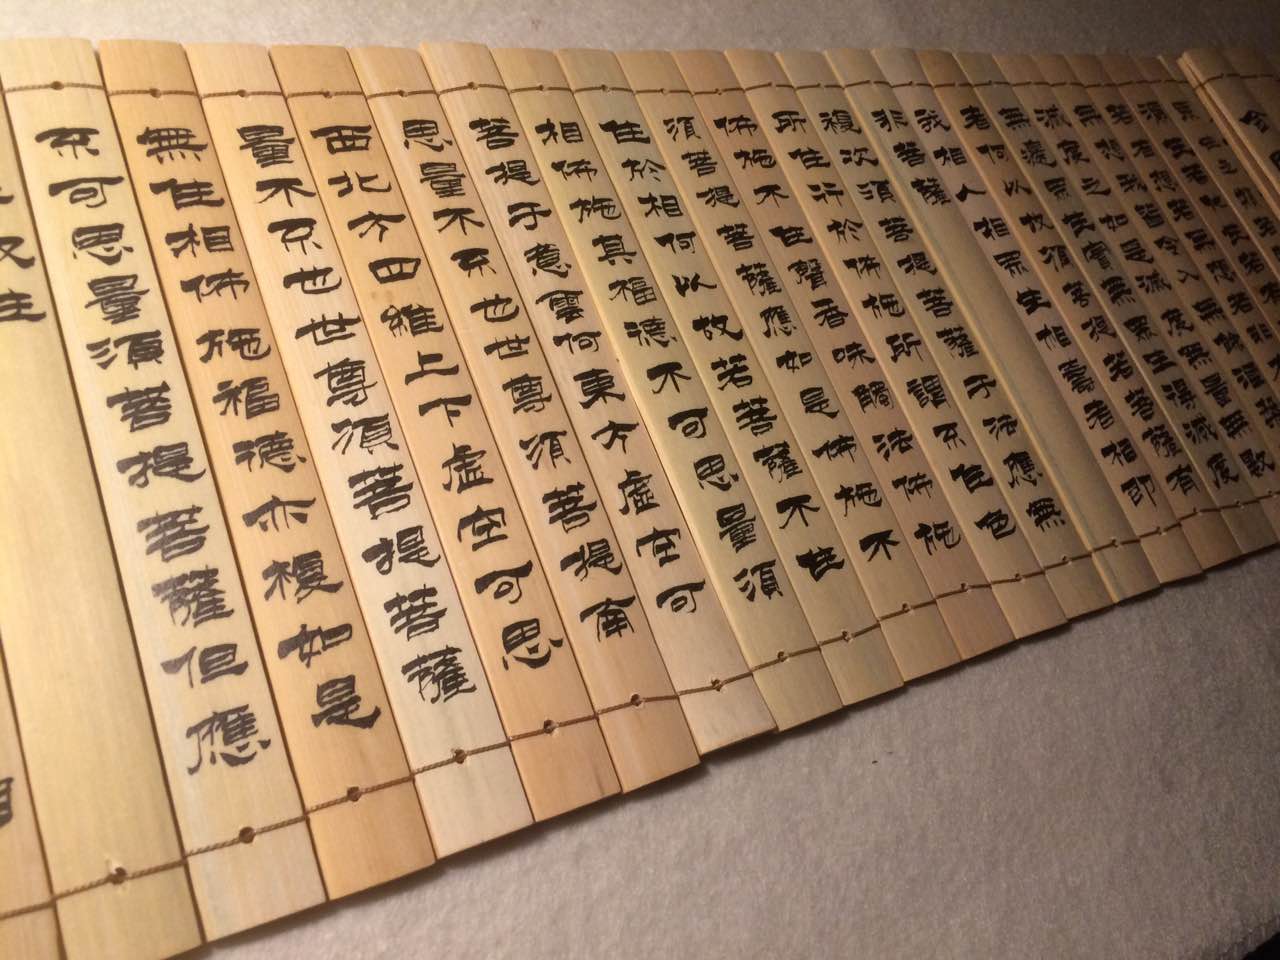 無想我皆令入無餘涅槃而
滅度之如是滅度無量無數
無邊眾生實無眾生得滅度
者何以故須菩提若菩薩有
我相人相眾生相壽者相即
非菩薩
複次須菩提菩薩于法應無
所住行於佈施所謂不住色
佈施不住聲香味觸法佈施
須菩提菩薩應如是佈施不
住於相何以故若菩薩不住
相佈施其福德不可思量須
菩提于意雲何東方虛空可
思量不不也世尊須菩提南
西北方四維上下虛空可思
量不不也世尊須菩提菩薩
無住相佈施福德亦複如是
不可思量須菩提菩薩但應